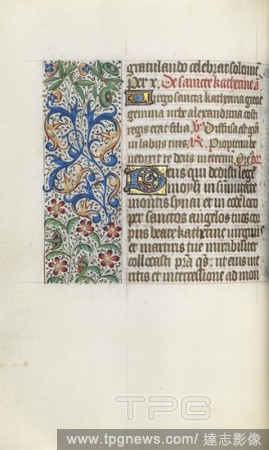 gratulando celebrat solenni
Per x. De saincte katherine a
Virgo sancta katherina grecie
gemma urbe alexandrina costi
regis erat filia
in labiis tuis. Propterea
benedixit te deus in eternum.
Deus qui dedisti lege
moysi in summitate
montis synai et in eodem loco
per sanctos angelos tuos corp
pus beate katherine virginis
et martiris tue mirabiliter
collocasti ut eius me
ritis et intercessione ad mon
TPG
www.tpgnews.com / 達志影像